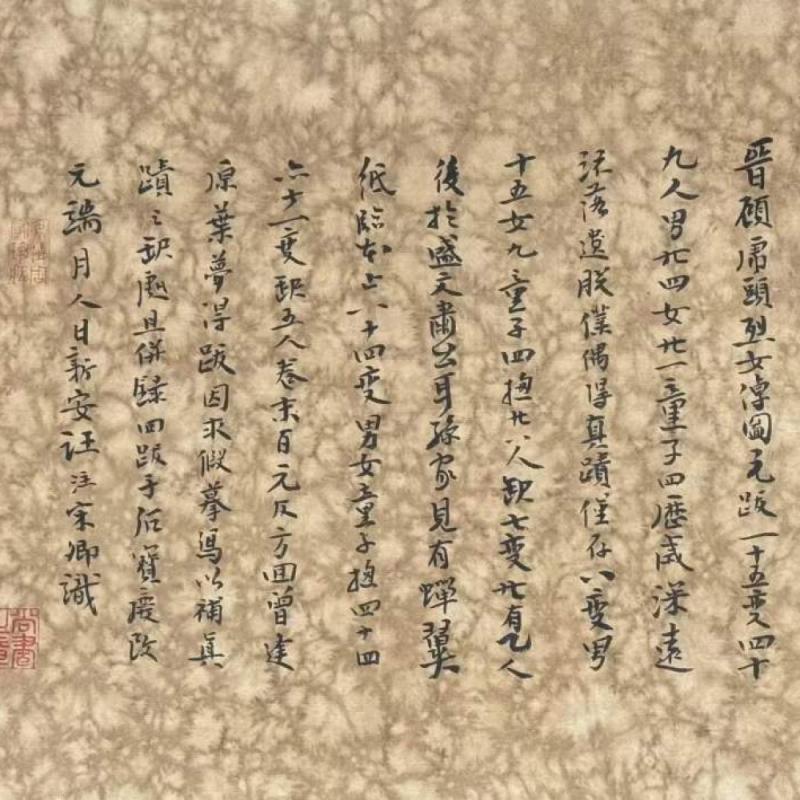 晉顧虎頭列女傳圖元跋一十五變四十
九人男廿四女廿一童子四歷歲深遠
流落遺脫僕偶得真蹟僅存八變男
十五女九童子四揔廿八人缺七變廿有乙人
後於盛文肅公耳孫家見有蟬翼
紙臨本上八十四變男女童子揔四十四
缺五人卷末百元及方回曾達
原葉夢得跋因求假摹寫以補真
蹟之缺處且併錄四跋于后寶慶改
元端月人日新安汪注宋卿識
尚書